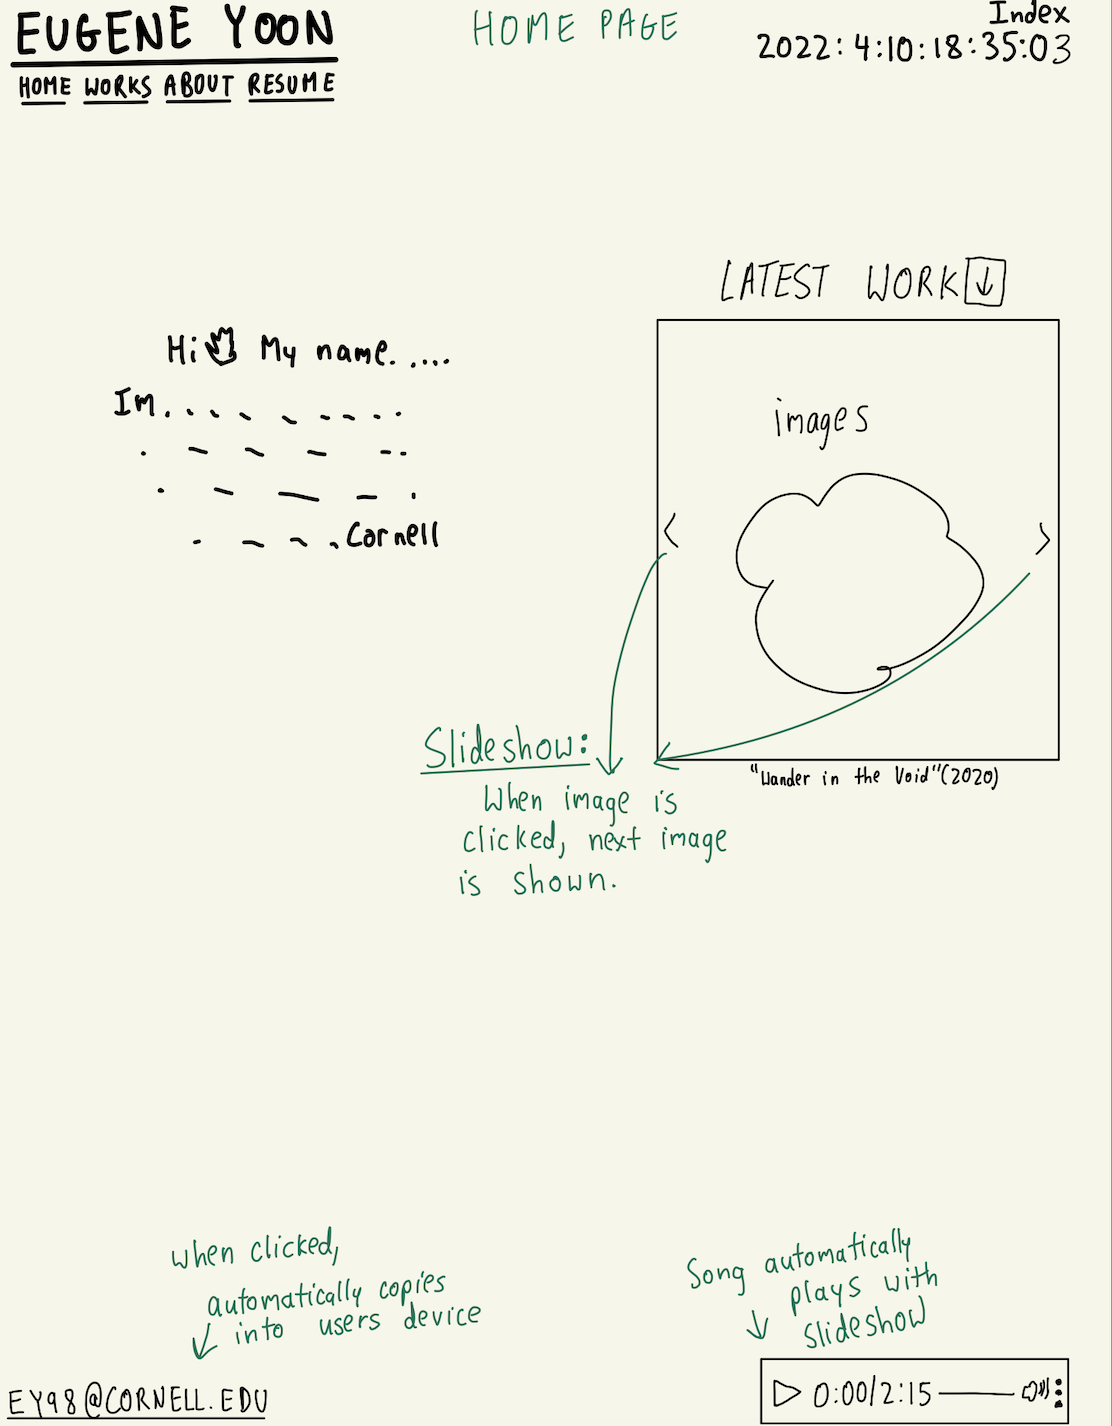 EUGENE YOON
HOME WORKS ABOUT RESUME
HOME PAGE
Index
2022:4:10:18:35:03
Hi My name. ....
Im. . . .
. Cornell
LATEST WORK ↓
images
< >
"Wander in the Void" (2020)
Slideshow:
When image is
clicked, next image
is shown.
when clicked,
automatically copies
into users device
EY98@CORNELL.EDU
Song automatically
plays with
Slideshow
0:00/2:15